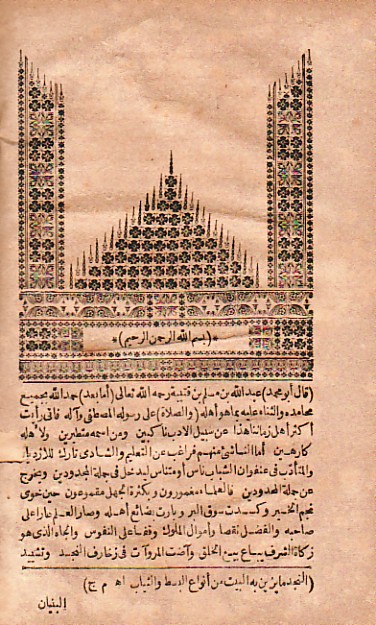 *(بسم الله الرحمن الرحيم)*
(قال أبو محمد) عبد الله بن مسلم بن قتيبة رحمه الله تعالى (أما بعد) حمد الله بجميع
محامده والثناء عليه بما هو أهله (والصلاة) على رسوله المصطفى وآله فانى رأيت
أكثر أهل زماننا هذا عن سبيل الادب ناكبين ومن اسمه متطيرين ولاهله
كارهين أما الناشئ منهم فراغب عن التعليم والشادى تارك للازدياد
والمتأدب فى عنفوان الشباب ناس أو متناس ليدخل فى جملة المجدودين ويخرج
عن جملة المحدودين فالعلماء مغمورون وبكثرة الجهل مقموعون حين خوى
نجم الخير وكسدت سوق البر وبارت بضائع أهله وصار العلم عارا على
صاحبه والفضل نقصا وأموال الملوك وقفا على النفوس والجاه الذى هو
زكاة الشرف يباع بيع الخلق وآضت المروآت فى زخارف النجد وتشييد
(النجد ما يزين به البيت من أنواع البسط والثياب اه م ج)
البنيان